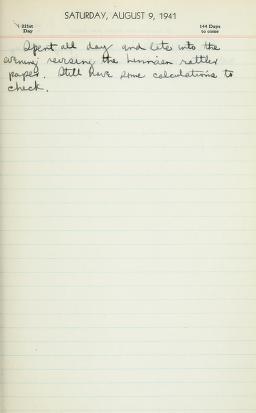 SATURDAY, AUGUST 9, 1941
221st
Day
144 Days
to come
Spent all day and late into the
evening revising the Linnaean rattler
paper. Still have some calculations to
check.